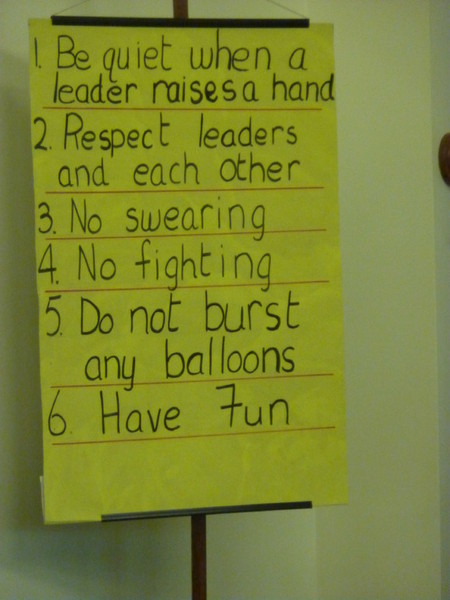 1. Be quiet when a
leader raises a hand
2. Respect leaders
and each other
3. No swearing
4. No fighting
5. Do not burst
any balloons
6. Have Fun